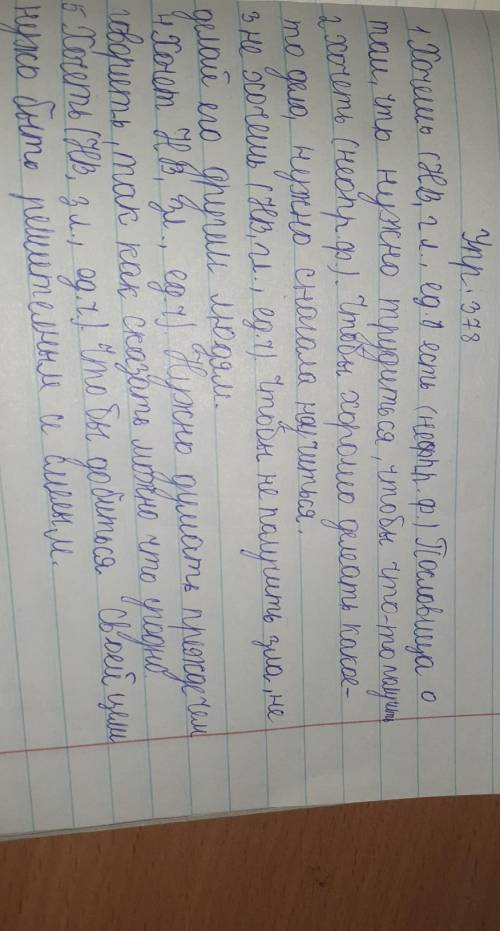 Упр. 378
1 Хочешь (НВ, 2 л., ед.ч есть (неопр. ф) Пословица о
том, что нужно трудиться, чтобы что-то получить
2 Хочеть (неопр. ф). Чтобы хорошо делать какое-
то дело, нужно сначала научиться.
3 не хочешь (НВ, 2л., ед.ч) Чтобы не получить зла, не
делай его другим людям.
4 Хочет НВ, 3л., ед.ч) Нужно думать прежде чем
говорить, так как сказать можно что угодно
5 Хочеть (НВ, 3 л., ед.ч.) Чтобы добиться своей цели
нужно быть решительным и